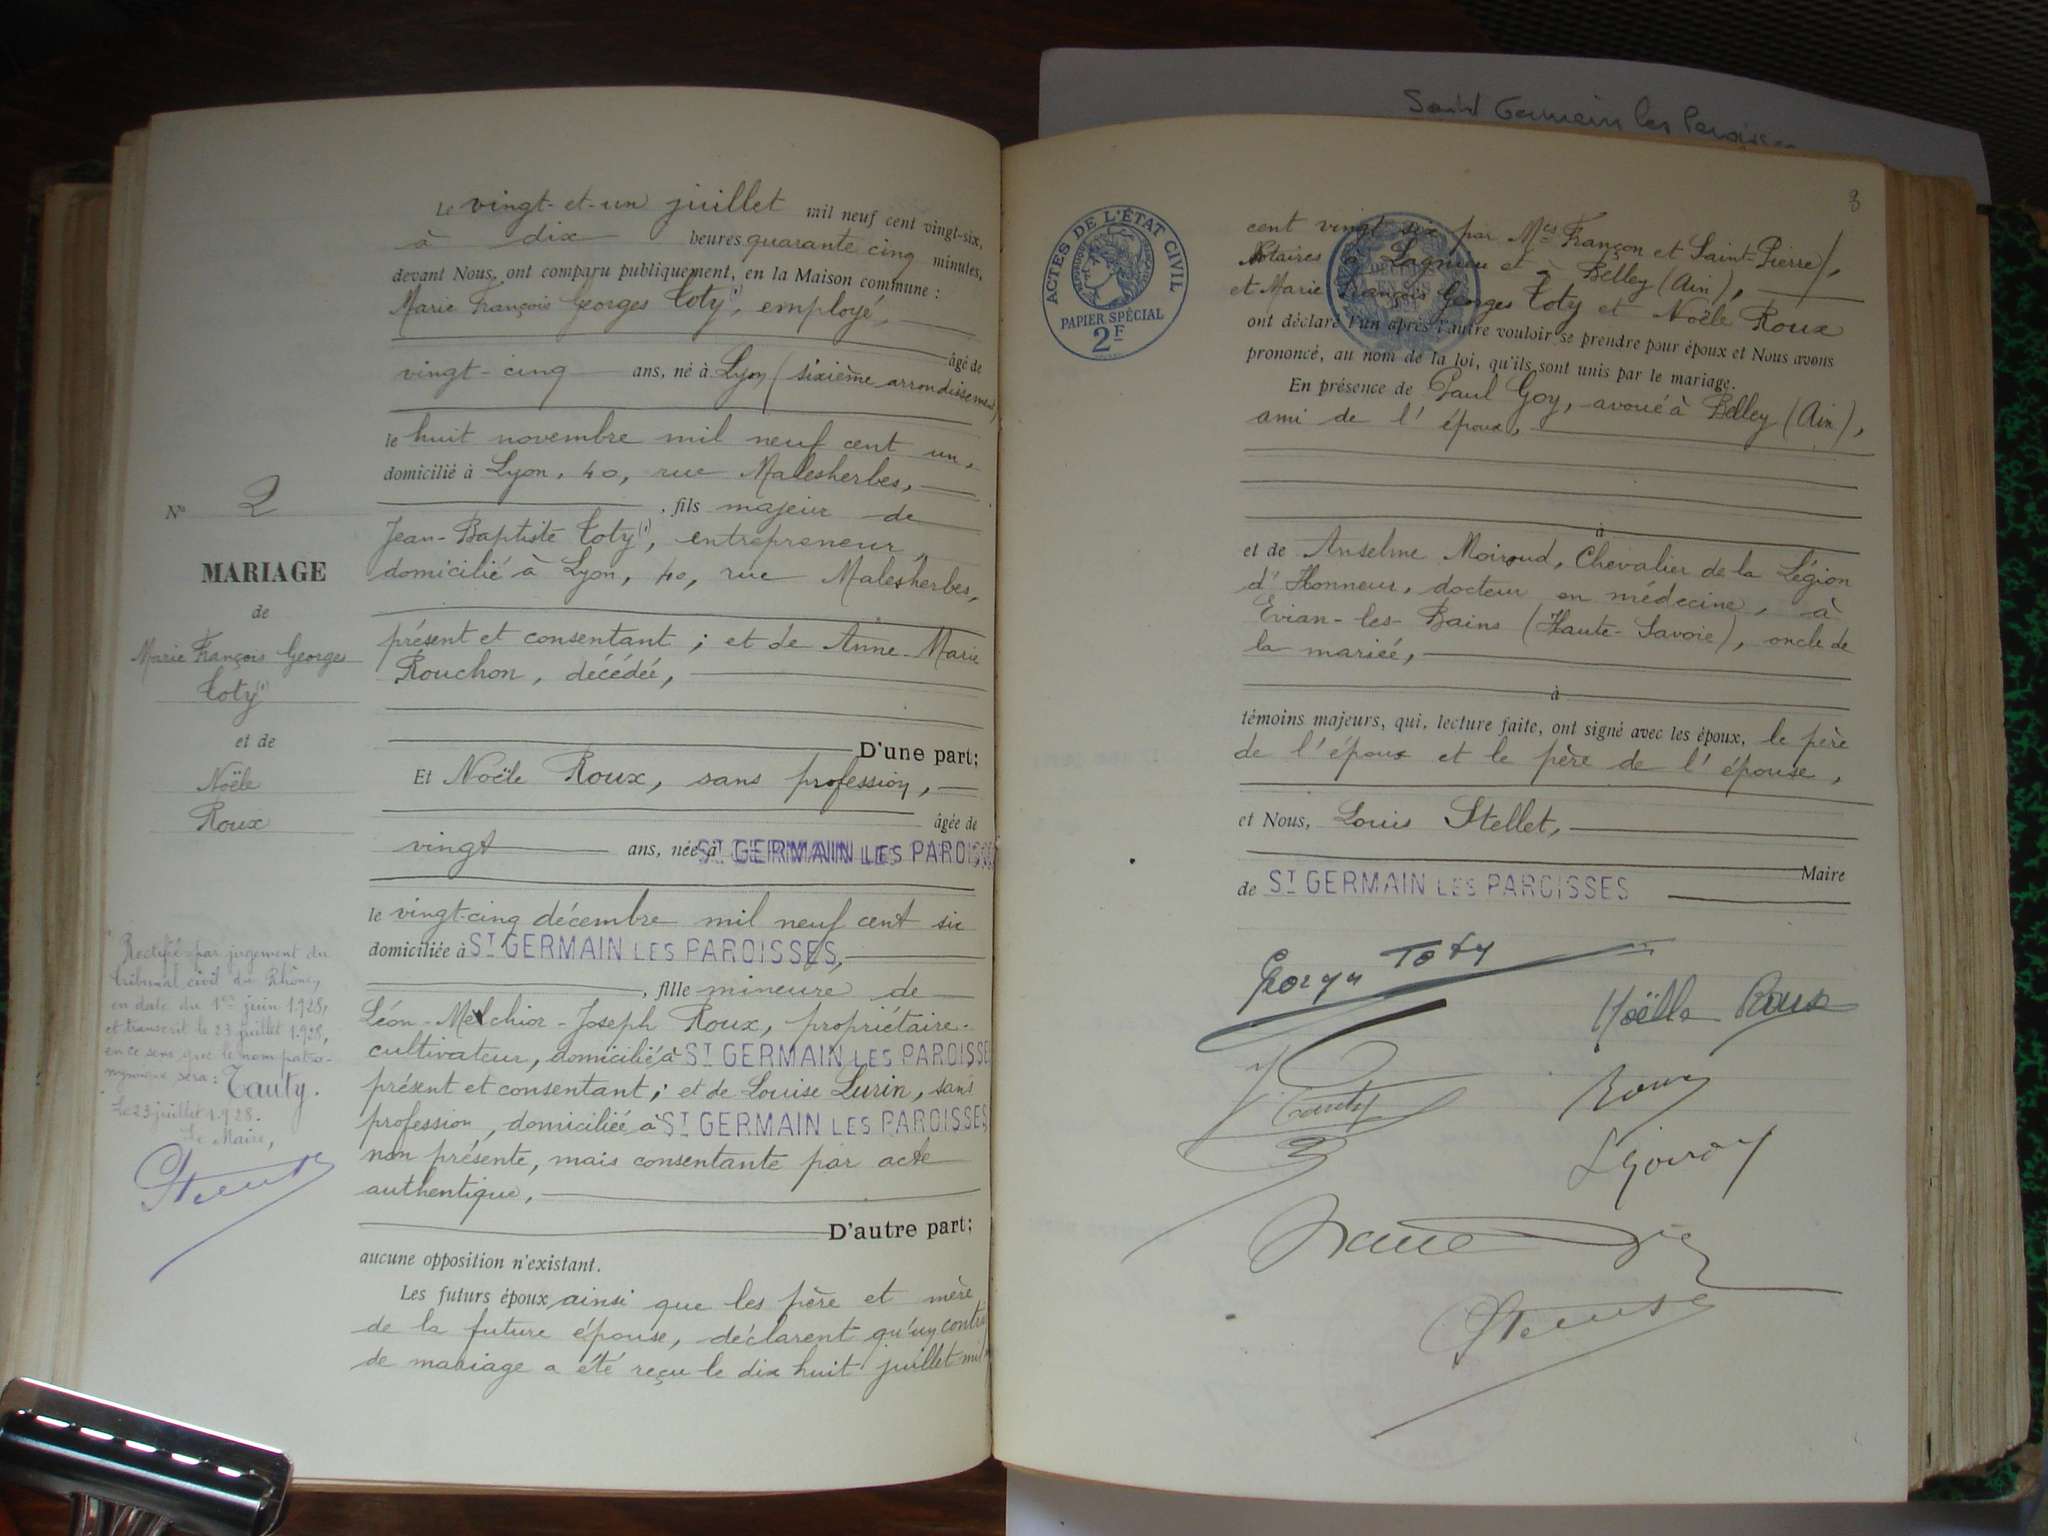 Saint Germain les Paroisses
Le vingt-et-un juillet mil neuf cent vingt-six,
à dix heures quarante cinq minutes,
devant Nous, ont comparu publiquement, en la Maison commune :
Marie François Georges Toty (1), employé,
âgé de
vingt-cinq ans, né à Lyon (sixième arrondissement)
le huit novembre mil neuf cent un,
domicilié à Lyon, 40, rue Malesherbes,
, fils majeur de
Jean-Baptiste Toty (1), entrepreneur,
domicilié à Lyon, 40, rue Malesherbes,
présent et consentant ; et de Anne-Marie
Rouchon, décédée,
D'une part;
Et Noële Roux, sans profession,
âgée de
vingt ans, née à ST GERMAIN LES PAROISSES
le vingt-cinq décembre mil neuf cent six
domiciliée à ST GERMAIN LES PAROISSES,
, fille mineure de
Léon-Melchior-Joseph Roux, propriétaire-
cultivateur, domicilié à ST GERMAIN LES PAROISSES
présent et consentant ; et de Louise Lurin, sans
profession, domiciliée à ST GERMAIN LES PAROISSES
non présente, mais consentante par acte
authentique,
D'autre part;
aucune opposition n'existant.
Les futurs époux ainsi que les père et mère
de la future épouse, déclarent qu'un contrat
de mariage a été reçu le dix huit juillet mil
No 2
MARIAGE
de
Marie François Georges
Toty (1)
et de
Noële
Roux
Rectifié par jugement du
tribunal civil du Rhône,
en date du 1er juin 1928,
et transcrit le 23 juillet 1928,
en ce sens que le nom patro-
nymique sera : Tauty.
Le 23 juillet 1928.
Le Maire,
3
ACTES DE L'ÉTAT CIVIL
PAPIER SPÉCIAL
2F
cent vingt six par Mes Françon et Saint-Pierre,
Notaires à Lagnieu et à Belley (Ain),
et Marie François Georges Toty et Noële Roux
ont déclaré l'un après l'autre vouloir se prendre pour époux et Nous avons
prononcé, au nom de la loi, qu'ils sont unis par le mariage.
En présence de Paul Goy, avoué à Belley (Ain),
ami de l'époux,
à
et de Anselme Moiroud, Chevalier de la Légion
d'Honneur, docteur en médecine, à
Evian-les-Bains (Haute-Savoie), oncle de
la mariée,
à
témoins majeurs, qui, lecture faite, ont signé avec les époux, le père
de l'époux et le père de l'épouse,
et Nous, Louis Stellet,
Maire
de ST GERMAIN LES PAROISSES
Georges Toty
Noëlle Roux
Roux